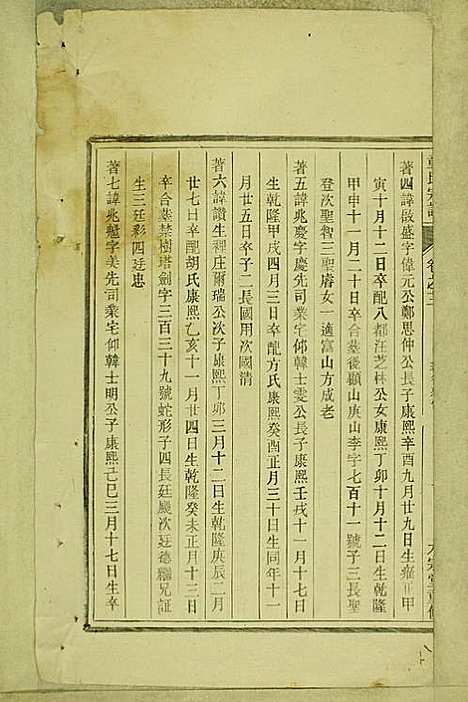 著四諱啟盛字偉元公鄭思仲公長子康熙辛酉九月廿九日生雍正甲
寅十月十二日卒配八都汪芝林公女康熙丁卯十月十二日生乾隆
甲申十一月二十日卒合墓後顧山庚山李字七百十一號子三長聖
登次聖智三聖睿女一適富山方成老
著五諱兆慶字慶先司業宅仰韓士雯公長子康熙壬戌十一月十七日
生乾隆甲戌四月三日卒配方氏康熙癸酉正月三十日生同年十一
月廿五日卒子二長國用次國清
著六諱讚生裡庄爾瑞公次子康熙丁卯三月十二日生乾隆庚辰二月
廿七日卒配胡氏康熙乙亥十一月廿四日生乾隆癸未正月十三日
卒合墓葉樹塔劍字三百三十九號蛇形子四長廷颺次廷德繼兄証
生三廷彩四廷忠
著七諱兆字美先司業宅仰韓士明公子康熙己巳三月十七日生卒